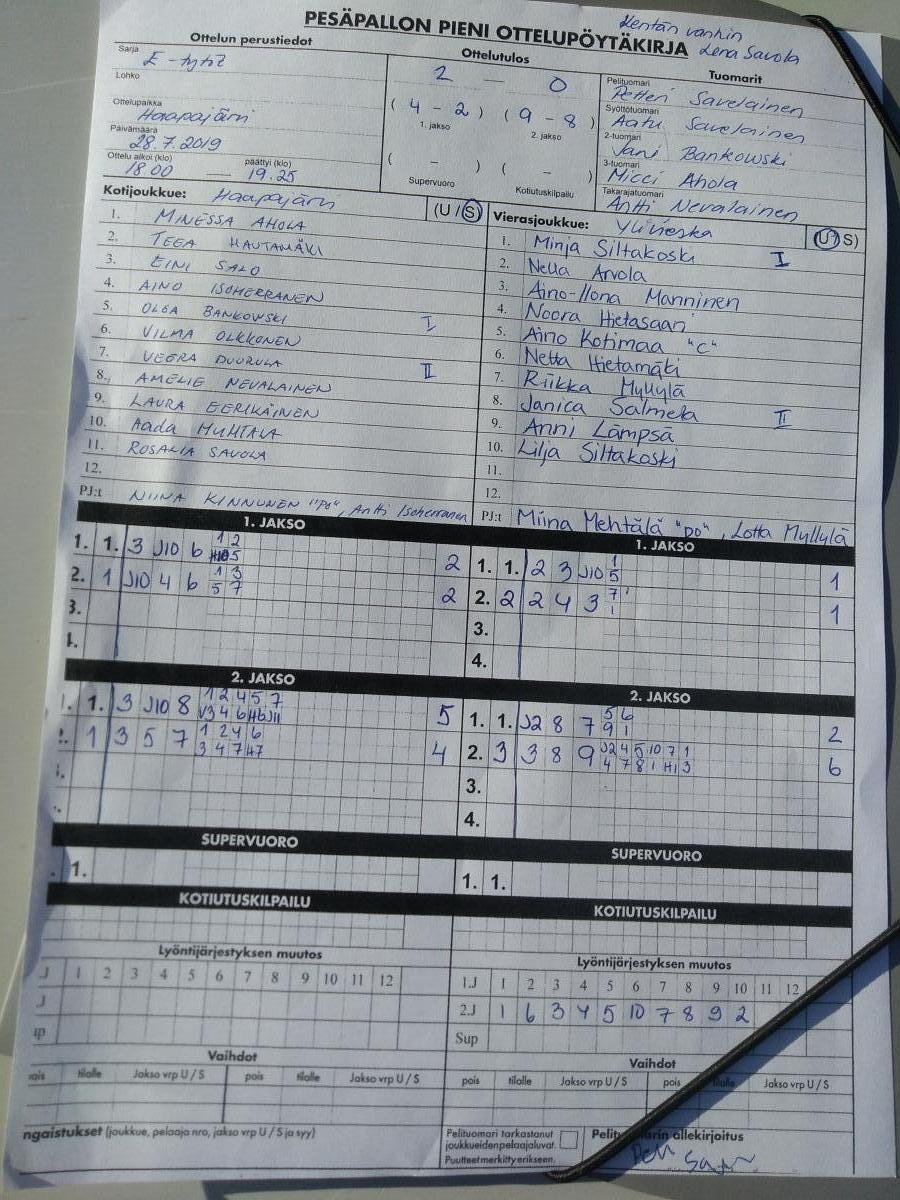 Kentän vanhin
PESÄPALLON PIENI OTTELUPÖYTÄKIRJA Lena Savola
Ottelun perustiedot
Sarja
E-tytöt
Lohko
Ottelupaikka
Haapajärvi
Päivämäärä
28.7.2019
Ottelu alkoi (klo) päättyi (klo)
18.00 19.25
Ottelutulos
2 — 0
(4 - 2) (9 - 8)
1. jakso 2. jakso
( - ) ( - )
Supervuoro Kotiutuskilpailu
Tuomarit
Pelituomari
Petteri Savelainen
Syöttötuomari
Aatu Savelainen
2-tuomari
Jani Bankowski
3-tuomari
Micci Ahola
Takarajatuomari
Antti Nevalainen
Kotijoukkue: Haapajärvi (U / S)
1. MINESSA AHOLA
2. TEGA HAUTAMÄKI
3. EINI SALO
4. AINO ISOHERRANEN
5. OLGA BANKOWSKI I
6. VILMA OLKKONEN
7. VEERA DUURULA II
8. AMELIE NEVALAINEN
9. LAURA EERIKÄINEN
10. Aada HUHTALA
11. ROSALIA SAVOLA
12.
PJ:t NIINA KINNUNEN "PJ", Antti Isoherranen
Vierasjoukkue: Ylivieska (U / S)
1. Minja Siltakoski I
2. Nella Arvola
3. Aino-Ilona Manninen
4. Noora Hietasaari
5. Aino Kotimaa "C"
6. Netta Hietamäki
7. Riikka Myllylä
8. Janica Salmela II
9. Anni Lämpsä
10. Lilja Siltakoski
11.
12.
PJ:t Miina Mehtälä "PJ", Lotta Myllylä
1. JAKSO
1. 1. 3 J10 6 1 2 2
2. 1 J10 4 6 1 3 2
5 7
3.
1. JAKSO
1. 1. 2 3 J10 1 1
5
2. 2 2 4 3 7 1
1
3.
4.
2. JAKSO
1. 3 J10 8 1 2 4 5 7 5
1 3 5 7 1 2 4 6 4
3 4 7 H7
2. JAKSO
1. 1. J2 8 7 5 6 2
9 1
2. 3 3 8 9 J2 4 5 10 7 1 6
4 7 8 1 H1 3
3.
4.
SUPERVUORO
1.
SUPERVUORO
1. 1.
KOTIUTUSKILPAILU
KOTIUTUSKILPAILU
Lyöntijärjestyksen muutos
J 1 2 3 4 5 6 7 8 9 10 11 12
J
Lyöntijärjestyksen muutos
1.J 1 2 3 4 5 6 7 8 9 10 11 12
2.J 1 6 3 4 5 10 7 8 9 2
Sup
Vaihdot
tilalle Jakso vrp U / S pois tilalle Jakso vrp U / S
Vaihdot
pois tilalle Jakso vrp U / S pois tilalle Jakso vrp U / S
ngaistukset (joukkue, pelaaja nro, jakso vrp U / S ja syy)
Pelituomari tarkastanut
joukkueiden pelaajaluvat.
Puutteet merkitty erikseen.
allekirjoitus